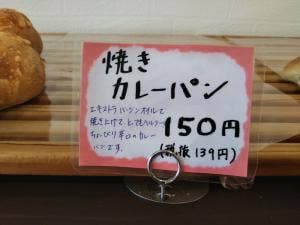 焼き
カレーパン
エキストラバージンオイルで
焼き上げて、とってもヘルシー
ちょっぴり辛口のカレー
パンです。
150円
(税抜139円)